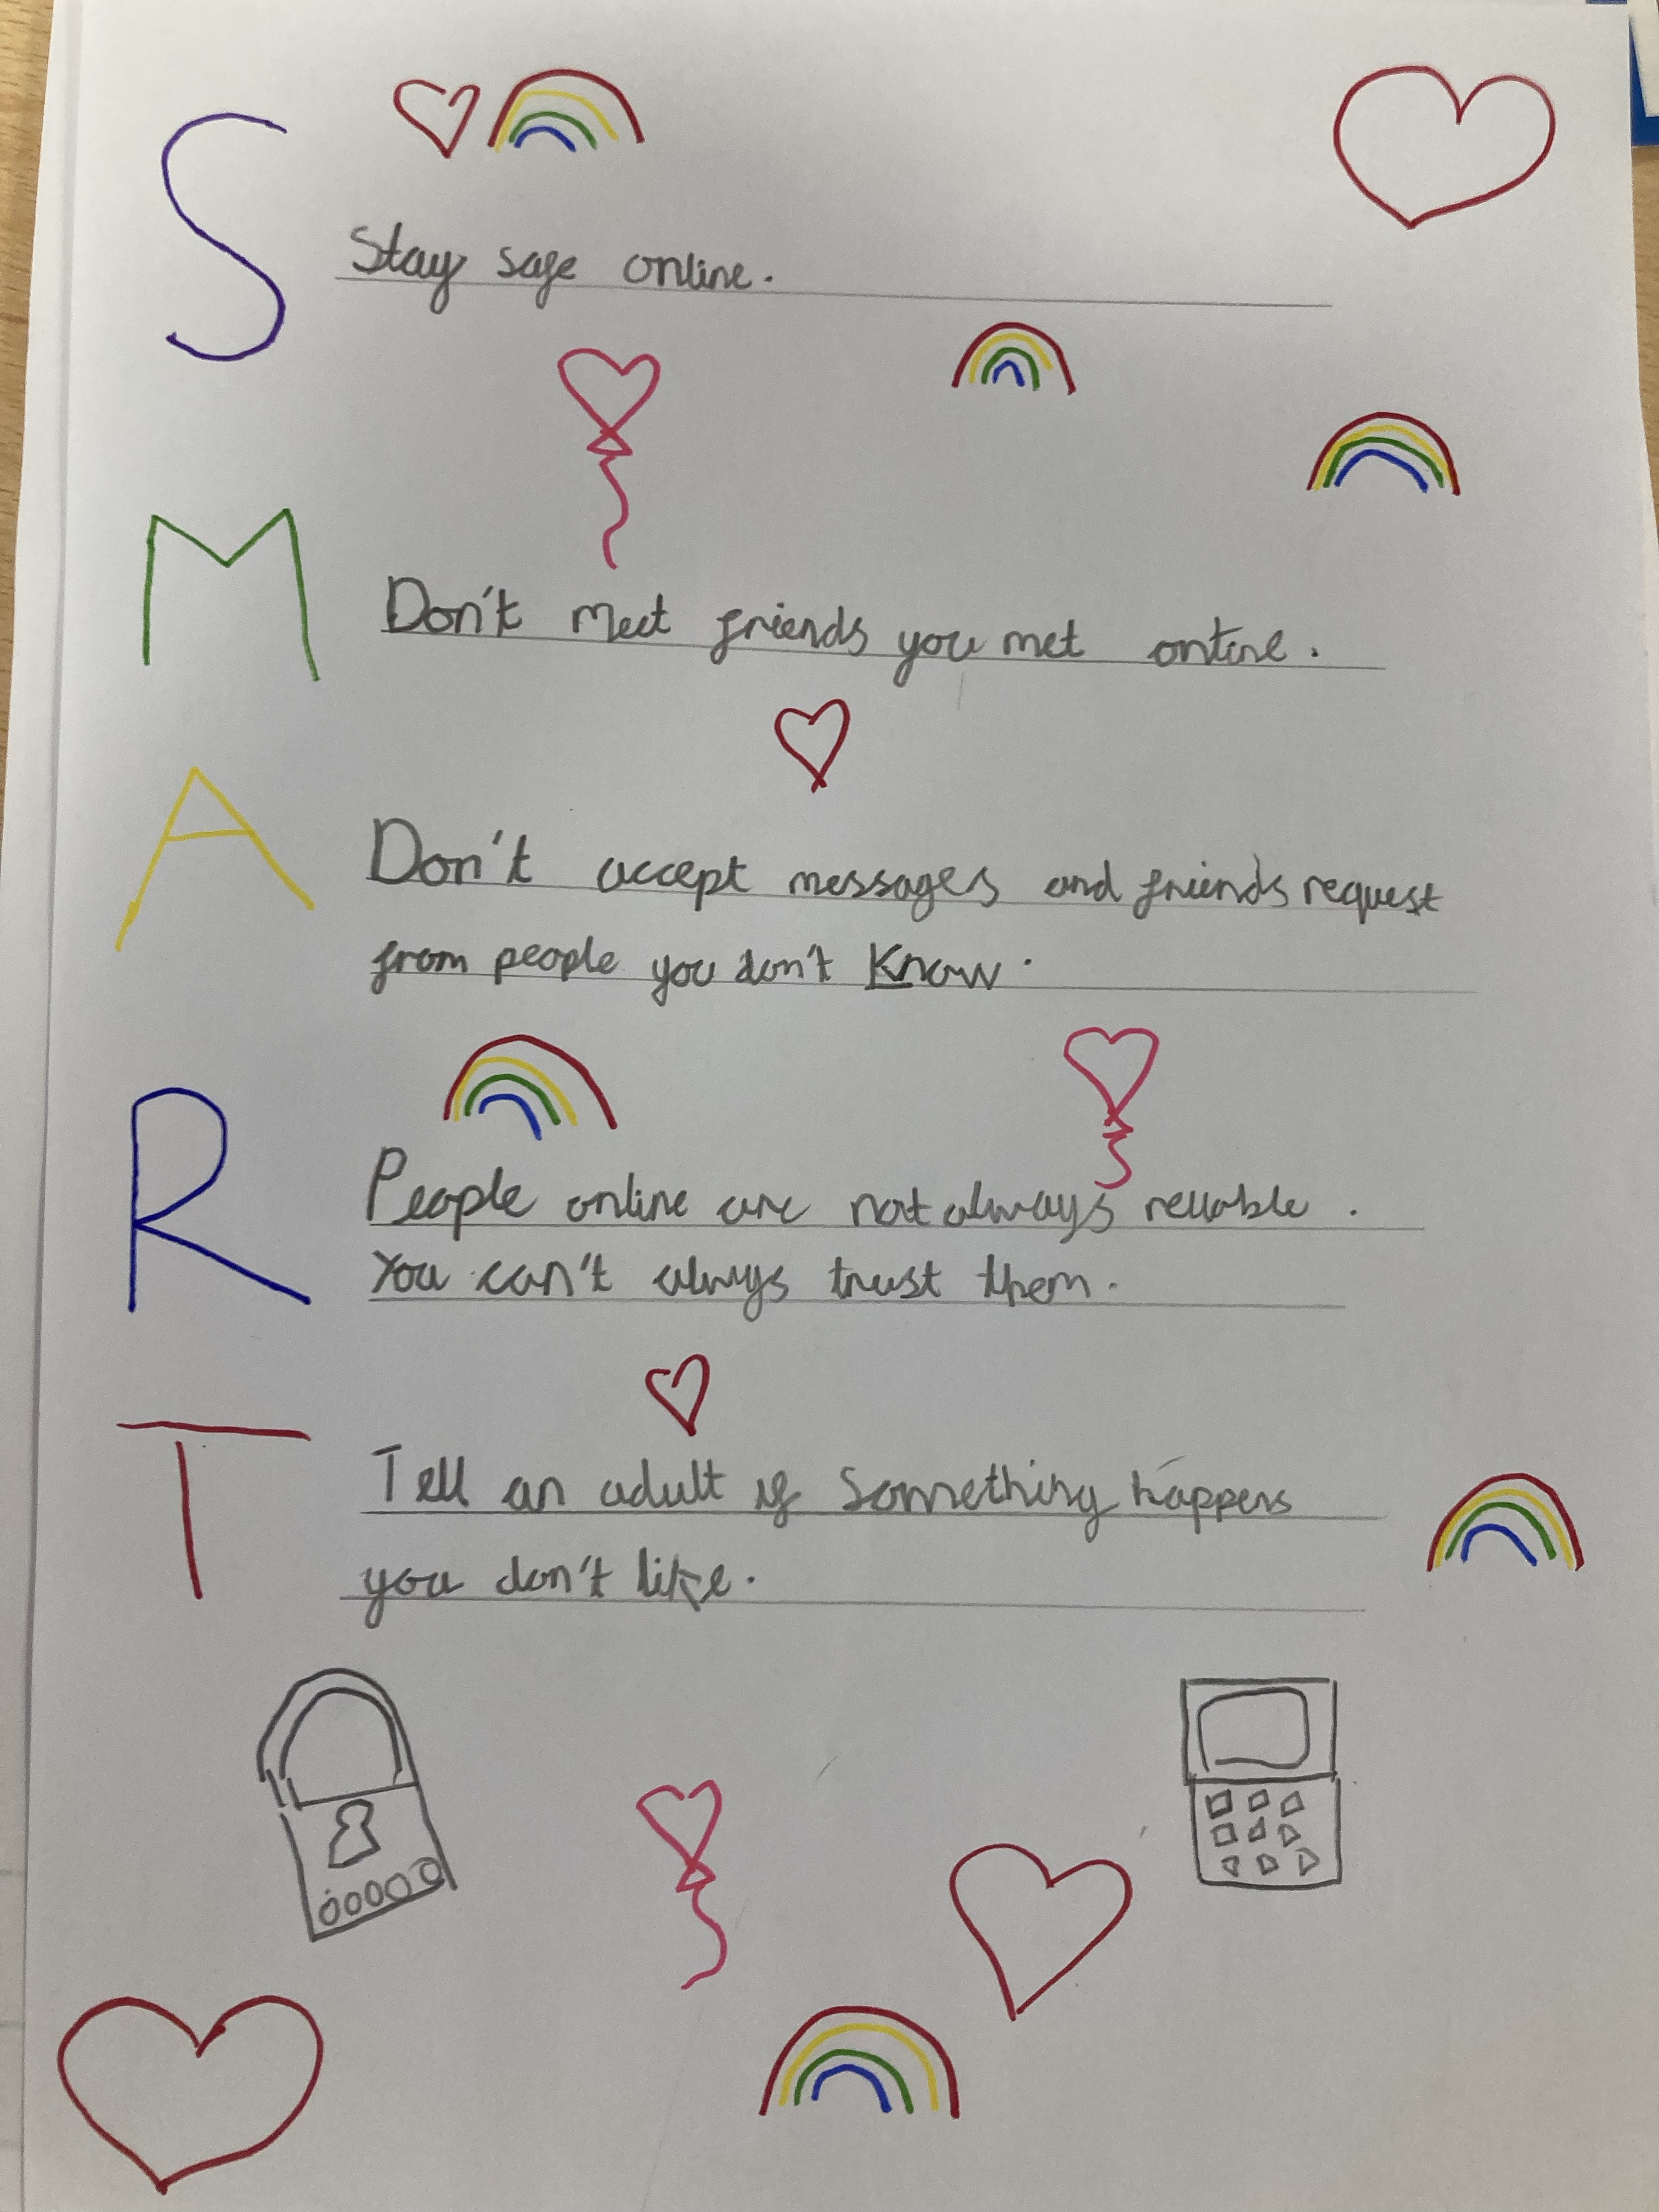 S
Stay safe online.
M
Don't meet friends you met online.
A
Don't accept messages and friends request
from people you don't Know.
R
People online are not always reliable.
You can't always trust them.
T
Tell an adult if Something happens
you don't like.